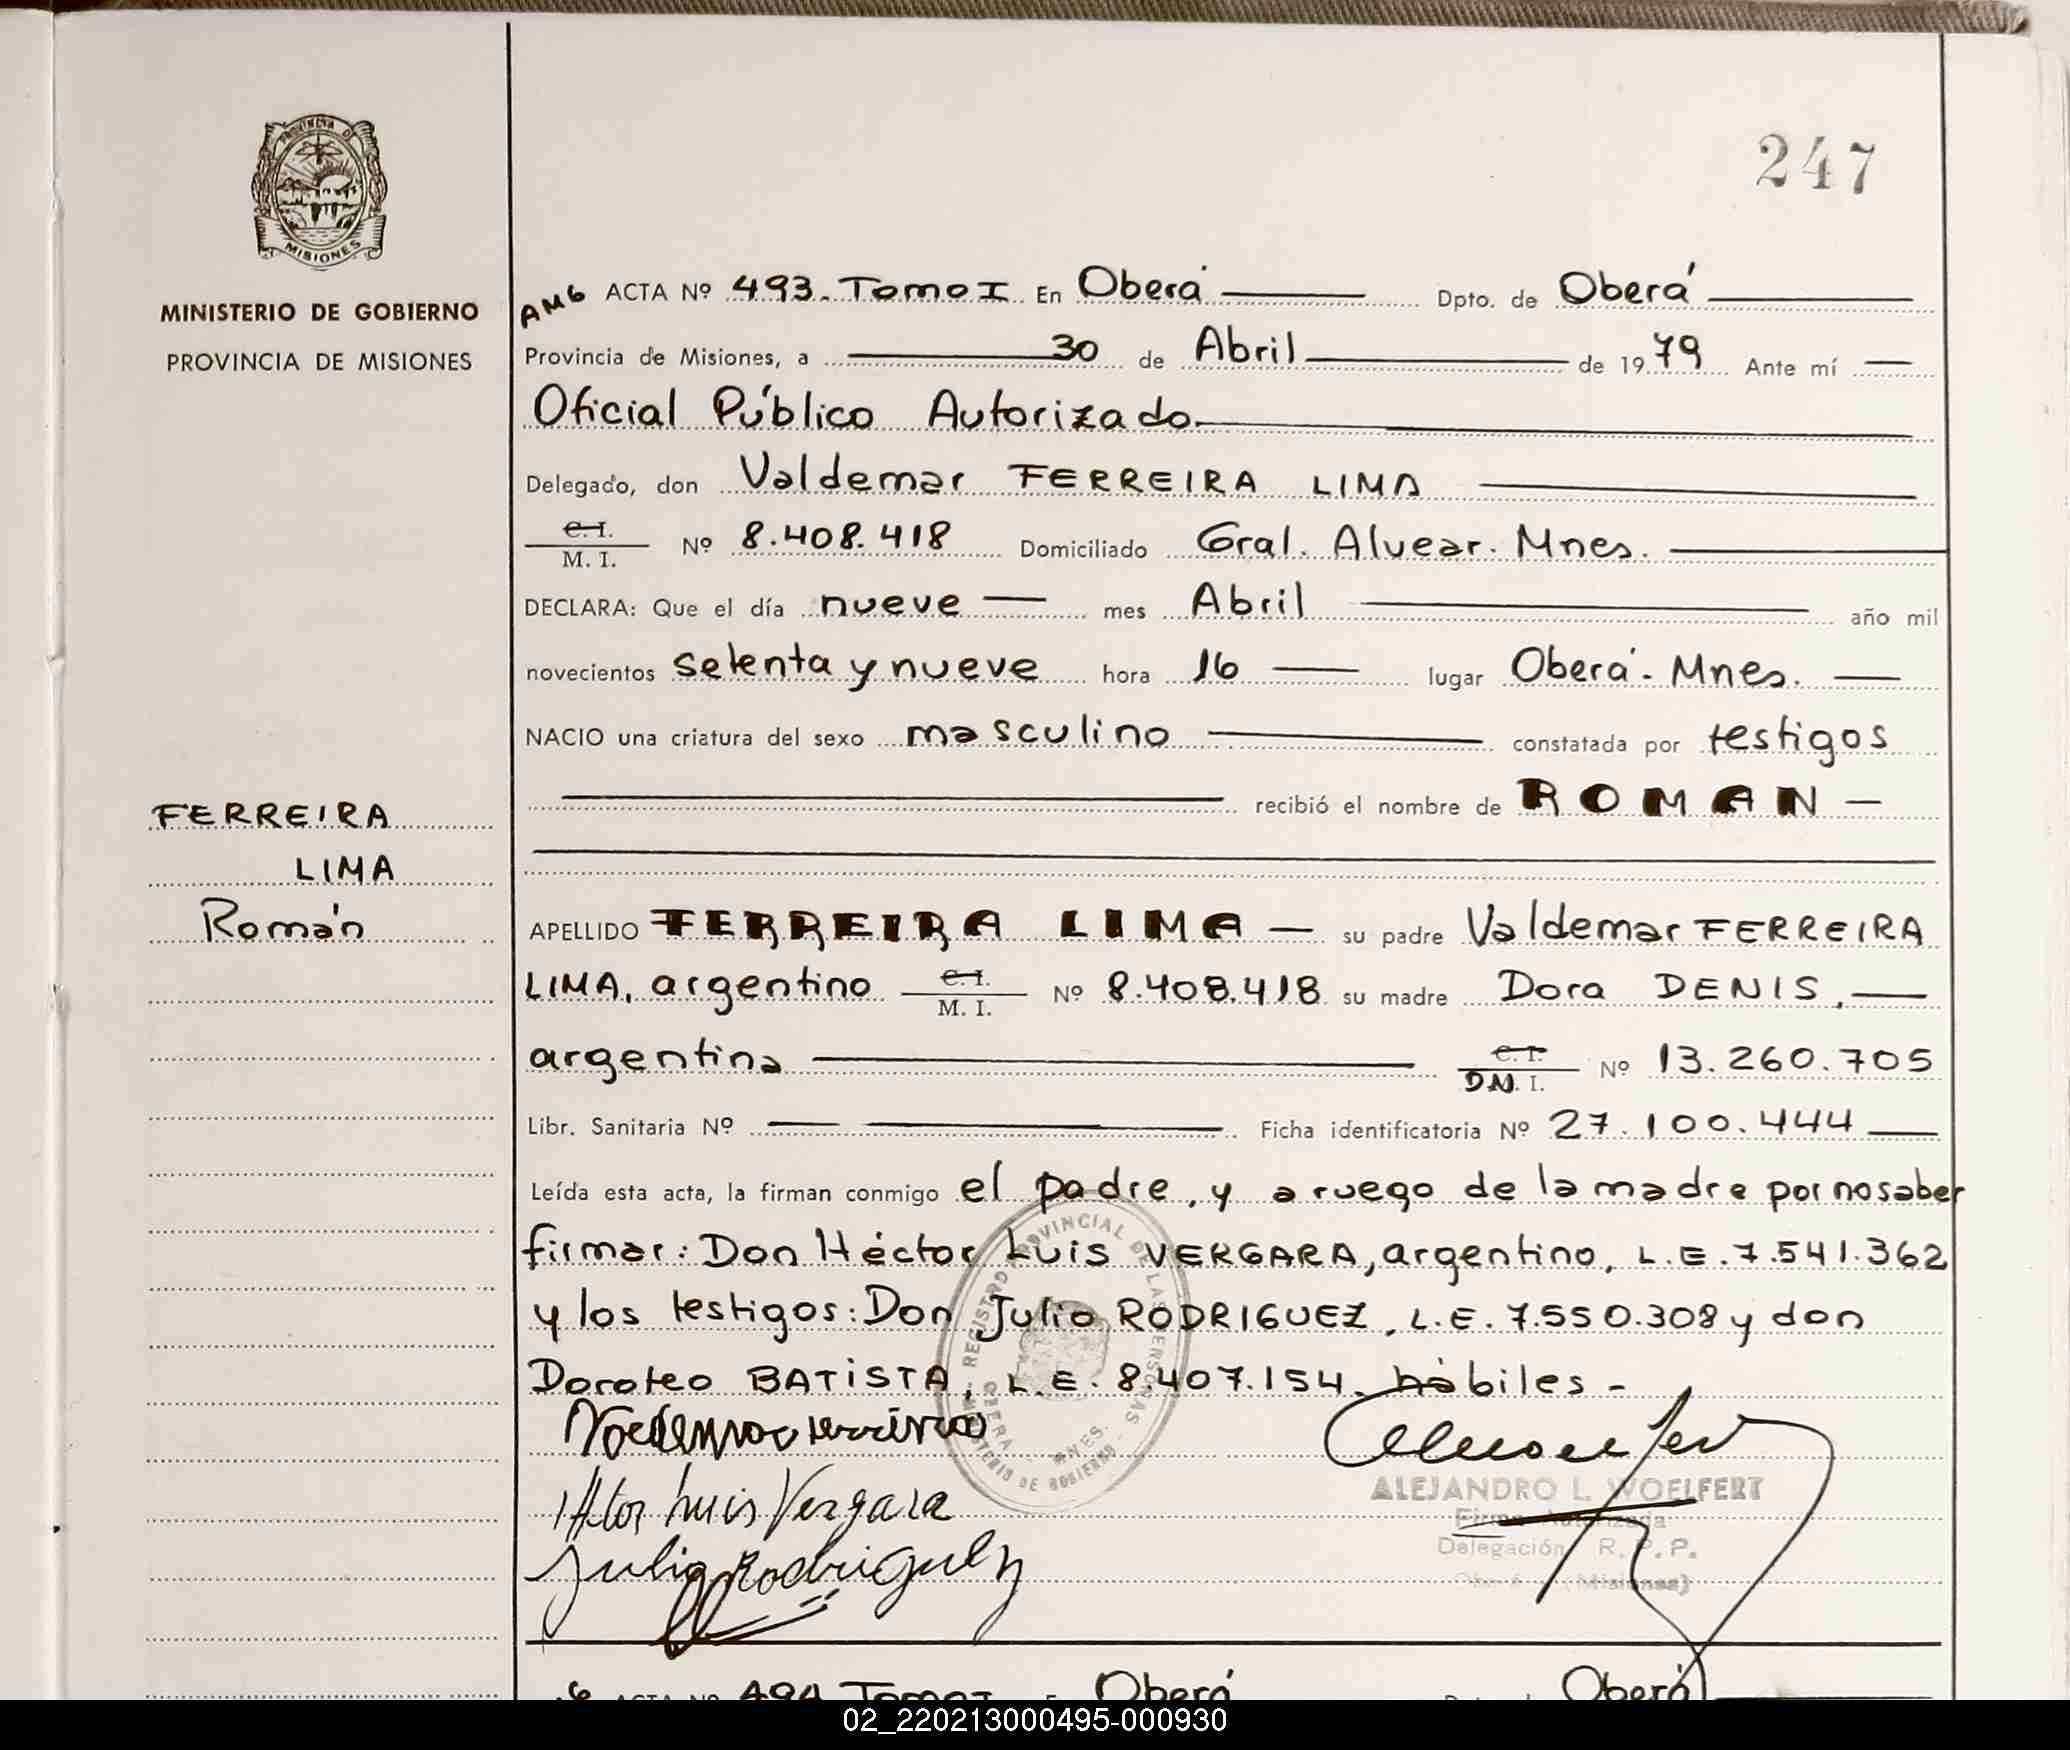 PROVINCIA DE
MISIONES
MINISTERIO DE GOBIERNO
PROVINCIA DE MISIONES
FERREIRA
LIMA
Román
247
AMG ACTA Nº 493. Tomo I En Oberá Dpto. de Oberá
Provincia de Misiones, a 30 de Abril de 1979 Ante mí
Oficial Público Autorizado
Delegado, don Valdemar FERREIRA LIMA
C. I.
M. I. Nº 8.408.418 Domiciliado Gral. Alvear. Mnes.
DECLARA: Que el día nueve mes Abril año mil
novecientos setenta y nueve hora 16 lugar Oberá. Mnes.
NACIO una criatura del sexo masculino constatada por testigos
recibió el nombre de ROMAN
APELLIDO FERREIRA LIMA su padre Valdemar FERREIRA
LIMA, argentino C. I. M. I. Nº 8.408.418 su madre Dora DENIS,
argentina C. I. DN. I. Nº 13.260.705
Libr. Sanitaria Nº Ficha identificatoria Nº 27.100.444
Leída esta acta, la firman conmigo el padre, y a ruego de la madre por no saber
firmar: Don Héctor Luis VERGARA, argentino, L.E. 7.541.362
y los testigos: Don Julio RODRIGUEZ, L.E. 7.550.308 y don
Doroteo BATISTA, L.E. 8.407.154. hábiles -
REGISTRO PROVINCIAL DE LAS PERSONAS
MINISTERIO DE GOBIERNO
OBERA MNES.
Luis Vergara
Julio Rodriguez
ALEJANDRO L. WOELFERT
Firma Autorizada
Delegación R. P. P.
Oberá (Misiones)
ACTA Nº 494 Tomo I En Oberá Oberá
02_220213000495-000930